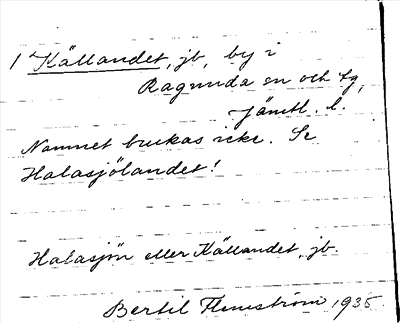 1 Källandet, jb, by i
Ragunda sn och tg,
Jämtl. l.
Namnet brukas icke. Se
Halasjölandet!
Halasjön eller Källandet, jb.
Bertil Flemström 1935